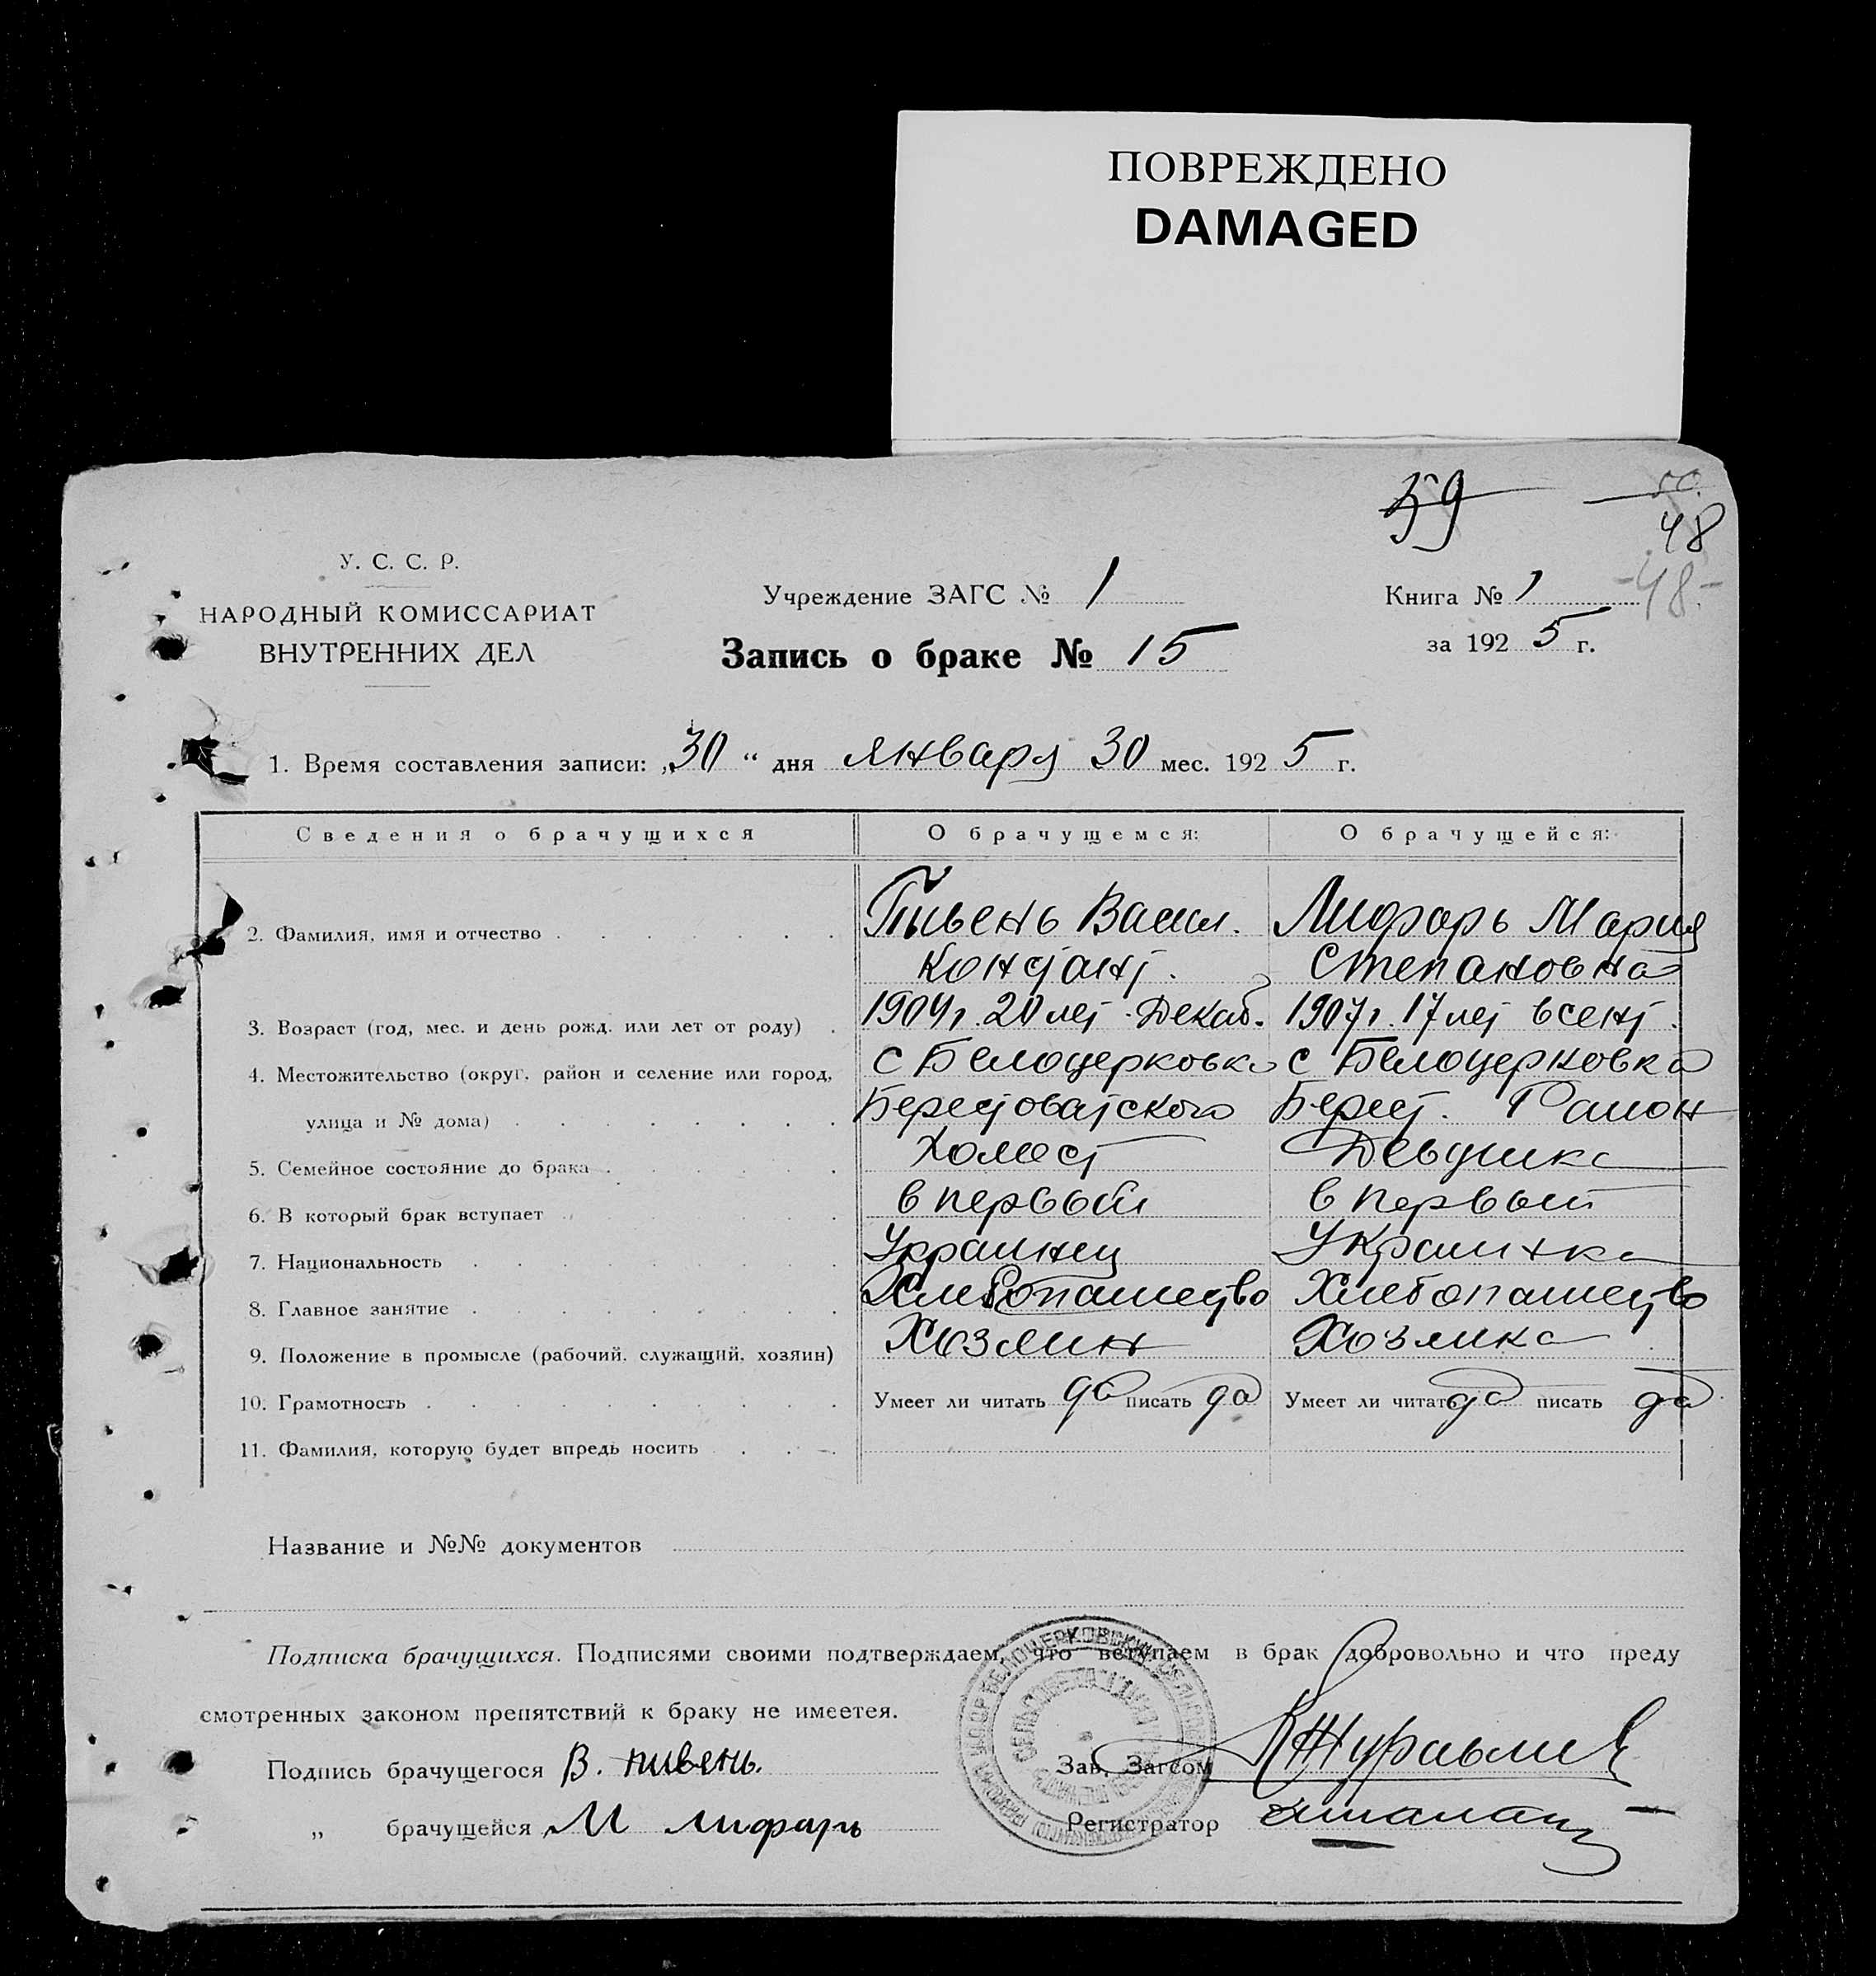 ПОВРЕЖДЕНО
DAMAGED
59
48
-48-
У. С. С. Р.
НАРОДНЫЙ КОМИССАРИАТ
ВНУТРЕННИХ ДЕЛ
Учреждение ЗАГС № 1
Запись о браке № 15
Книга № 1
за 1925 г.
1. Время составления записи: „30“ дня января 30 мес. 1925 г.
Сведения о брачущихся О брачущемся: О брачущейся:
2. Фамилия, имя и отчество Пивень Васил. Лифарь Мария
Констант. Степановна
3. Возраст (год, мес. и день рожд. или лет от роду) 1904г. 20 лет. Декаб. 1907г. 17 лет в сент.
4. Местожительство (округ, район и селение или город, с Белоцерковка с Белоцерковка
улица и № дома) Берестоватского Берест. Район
5. Семейное состояние до брака Холост Девушка
6. В который брак вступает в первый в первый
7. Национальность Украинец Украинка
8. Главное занятие Хлебопашество Хлебопашество
9. Положение в промысле (рабочий, служащий, хозяин) Хозяин Хозяйка
10. Грамотность Умеет ли читать да писать да Умеет ли читать да писать да
11. Фамилия, которую будет впредь носить
Название и №№ документов
Подписка брачущихся. Подписями своими подтверждаем, что вступаем в брак добровольно и что преду
смотренных законом препятствий к браку не имеется.
Подпись брачущегося В. пивень.
Зав. Загсом Журавлив
„ брачущейся М лифарь
Регистратор